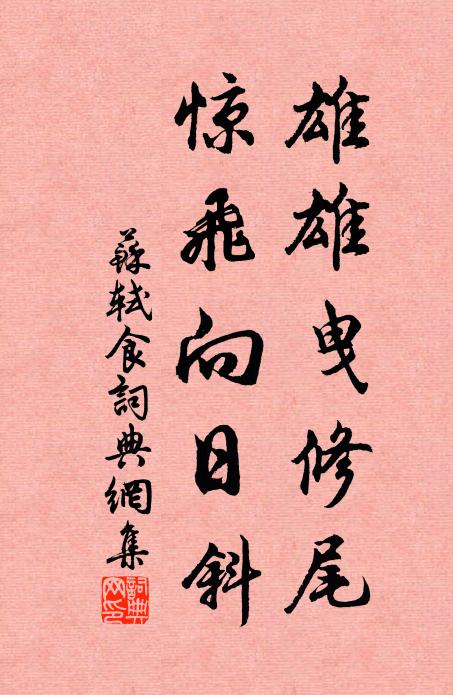 雄雄曳修尾
惊飛向日斜
蘇軾食詞典網集
詞典
网印